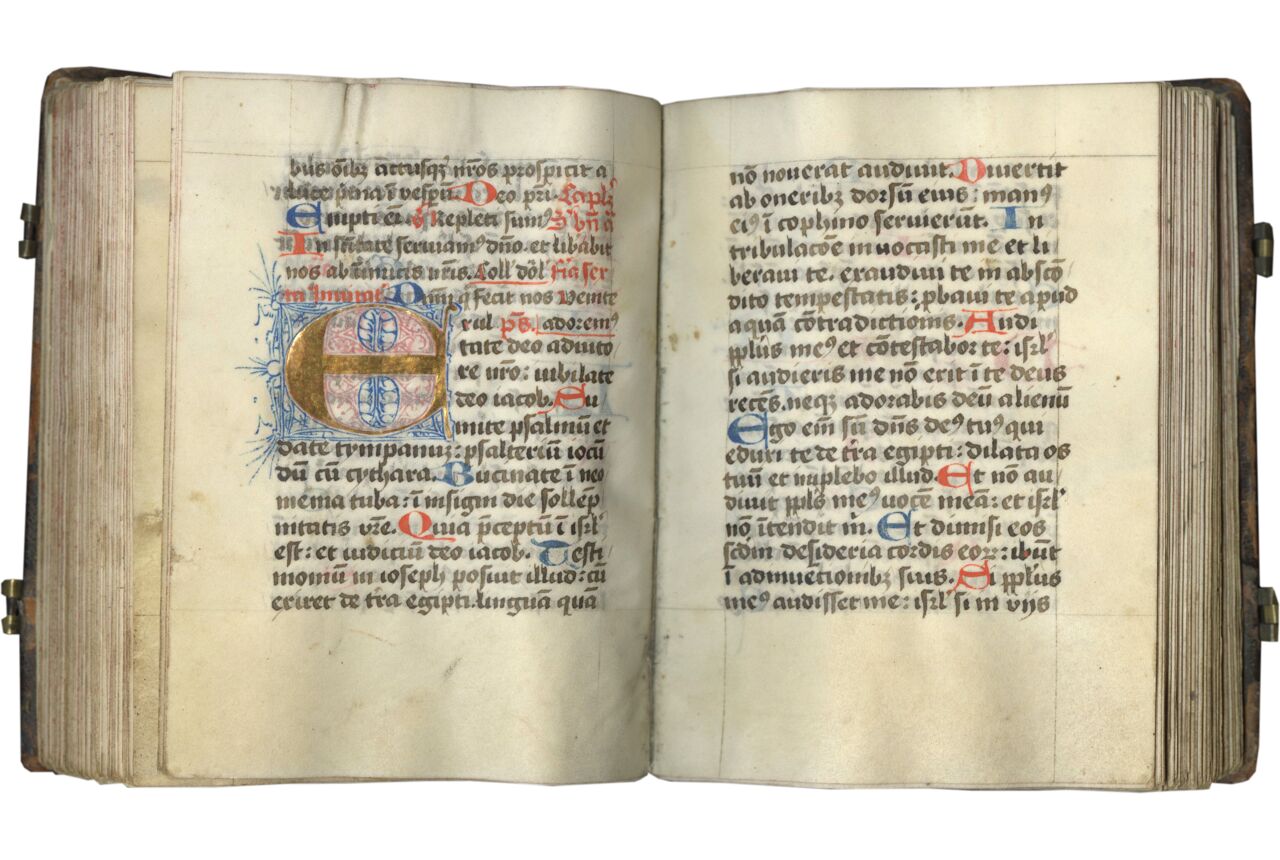 bus oībꝫ
prospicit a
Deo pr̄i.
Empti eī. Repleti sumꝰ
In sc̄itate seruiamꝰ dn̄o. et libābit
nos ab īnimicis nr̄is. Coll̄ Fīa ser
q̄ fecit nos Venite
ps̄. adoremꝰ
Exul
tate deo adiuto
re nr̄o: iubilate
deo iacob. Su
mite psalmū et
date tympanuꝫ: psalteriū iocū
dū cū cythara. Bucinate ī neo
menia tuba: ī insigni die sollēp
nitatis vr̄e. Quia p̄ceptū ī isrl̄
est: et iudiciū deo iacob. Testi
moniū in ioseph posuit illud: cū
exiret de tr̄a egipti. linguā quā
nō nouerat audiuit. Diuertit
ab oneribꝫ dorsū eius: manꝰ
eiꝰ ī cophino seruierūt. In
tribulacōe inuocasti me et li
beraui te. exaudiui te in abscō
dito tempestatis: ꝓbaui te apud
aquā cōtradictionis. Audi
ppl̄us meꝰ et cōtestabor te: isrl̄
si audieris me nō erit ī te deus
recēs. neqꝫ adorabis deū alienū
Ego eīm sū dn̄s deꝰ tuꝰ qui
eduxi te de tr̄a egipti: dilata os
tuū et implebo illud. Et nō au
diuit ppl̄s meꝰ uocē meā: et isrl̄
nō ītendit m̄. Et dimisi eos
scd̄m desideria cordis eoꝝ: ibūt
ī adinuēcionibꝫ suis. Si ppl̄us
meꝰ audisset me: isrl̄ si in vijs